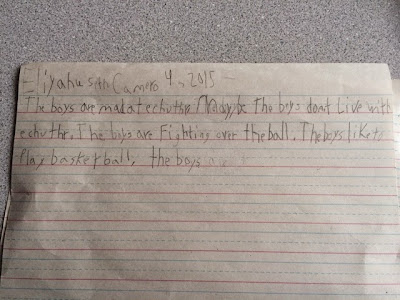 Eliyahu san Camero 4, 2015
The boys are mad at echuthr Madyybe The boys dont Live with
echuthr. The boys are Fighting over the ball. The boys like to
Play basketball, the boys are